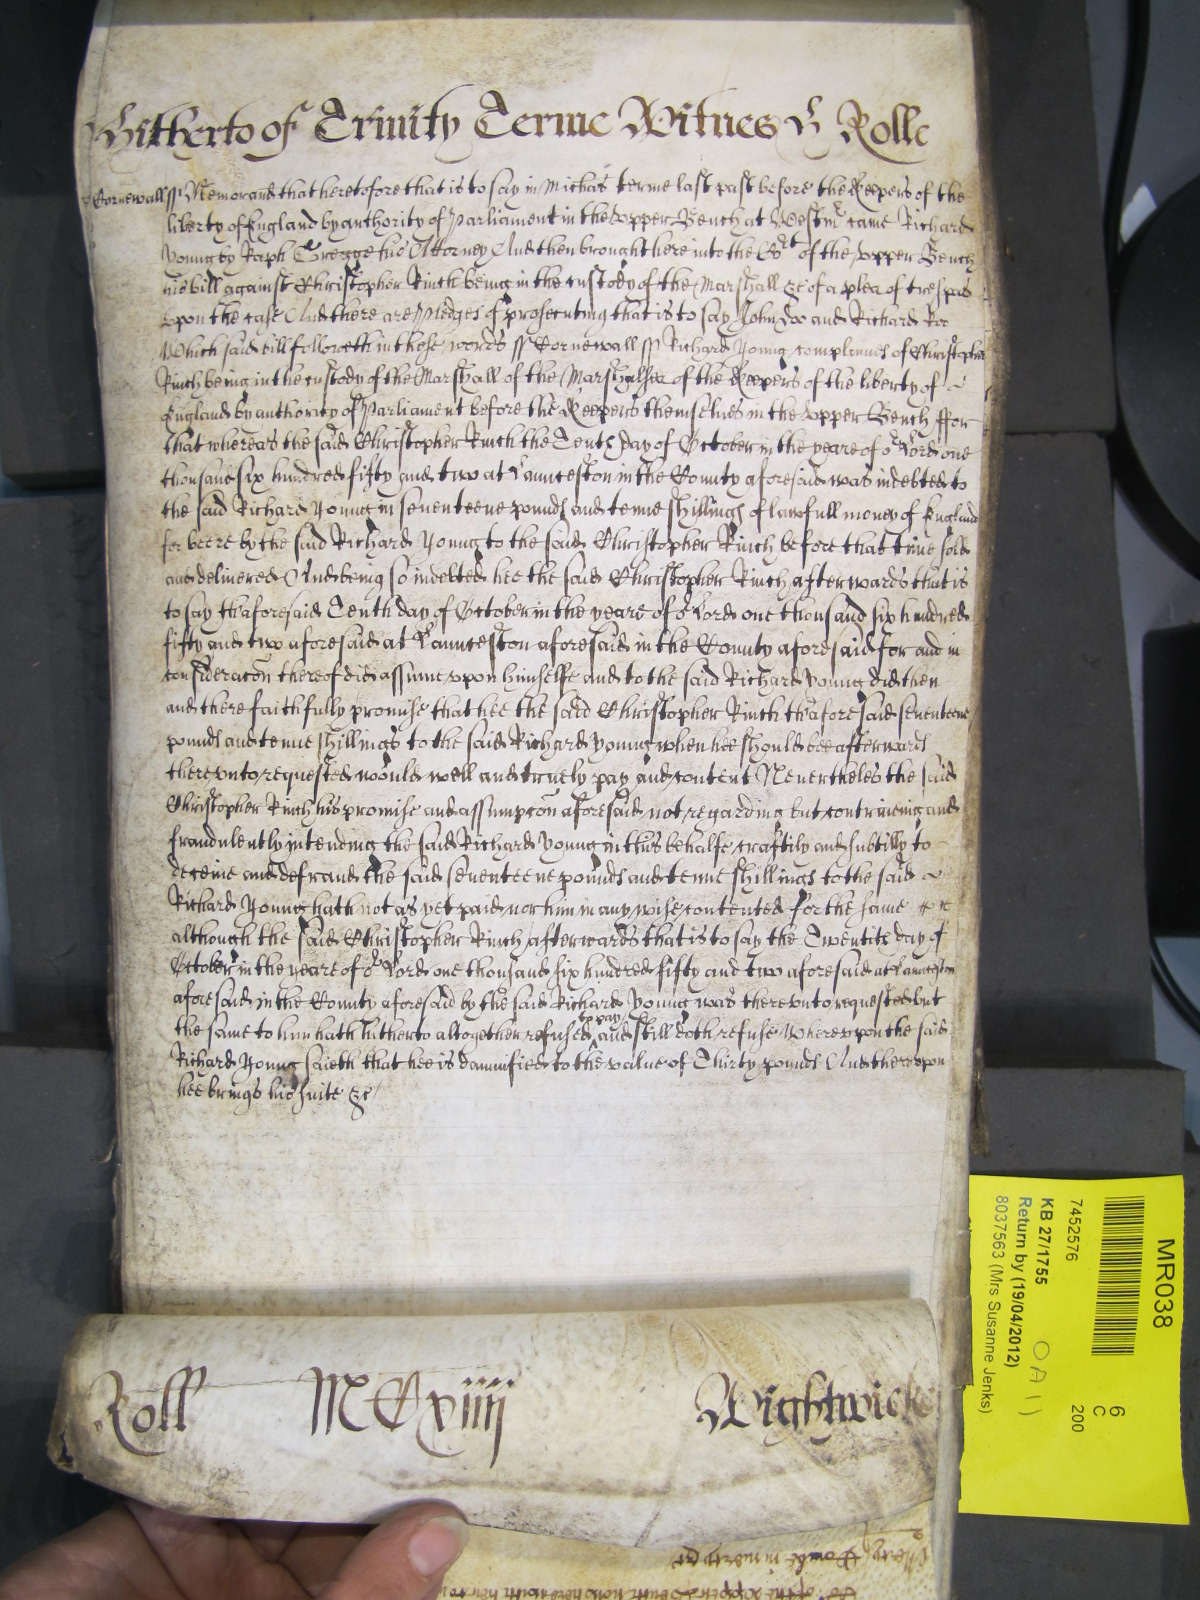 Hitherto of Trinity Terme Witnes H Rolle
Cornewall ss Memorand that heretofore that is to say in Michas terme last past before the Keepers of the
liberty of England by authority of Parliament in the upper Bench at Westmr came Richard
Young by Raph Gregge his Attorney And then brought here into the Cort of the upper Bench
his bill against Christopher Rinch being in the custody of the Marshall &c of a plea of trespas
upon the case And there are pledges of prosecuting that is to say John Doo and Richard Roe
Which said bill followeth in these words ss Cornewall ss Richard Young complaines of Christopher
Rinch being in the custody of the Marshall of the Marshalsea of the Keepers of the liberty of
England by authority of Parliament before the Keepers themselves in the upper Bench ffor
that whereas the said Christopher Rinch the Tenth day of October in the yeare of or Lord one
thousand six hundred fifty and two at Launceston in the County aforesaid was indebted to
the said Richard Young in seventeene pounds and tenne shillings of lawfull money of England
for beere by the said Richard Young to the said Christopher Rinch before that time sold
and delivered And being so indebted hee the said Christopher Rinch afterwards that is
to say thaforesaid Tenth day of October in the yeare of or Lord one thousand six hundred
fifty and two aforesaid at Launceston aforesaid in the County aforesaid for and in
consideracon thereof did assume upon himselfe and to the said Richard Young did then
and there faithfully promise that hee the said Christopher Rinch thaforesaid seventeene
pounds and tenne shillings to the said Richard Young when hee should bee afterwards
thereunto requested would well and truely pay and content Neverthelesse the said
Christopher Rinch his promise and assumpcon aforesaid not regarding but contriveing and
fraudulently intending the said Richard Young in this behalfe craftily and subtilly to
deceive and defraud the said seventeene pounds and tenne shillings to the said
Richard Young hath not as yet paid nor him in any wise contented for the same
although the said Christopher Rinch afterwards that is to say the Twentith day of
October in the yeare of or Lord one thousand six hundred fifty and two aforesaid at Launceston
aforesaid in the County aforesaid by the said Richard Young was thereunto requested but
the same to him hath hitherto altogether refused to pay and still doth refuse Whereupon the said
Richard Young saieth that hee is damnified to the value of Thirty pounds And thereupon
hee brings his suite &c
Roll MCxiiij Wightwicke
MR038
7452576
KB 27/1755
Return by (19/04/2012)
8037563 (Mrs Susanne Jenks)
6
C
200